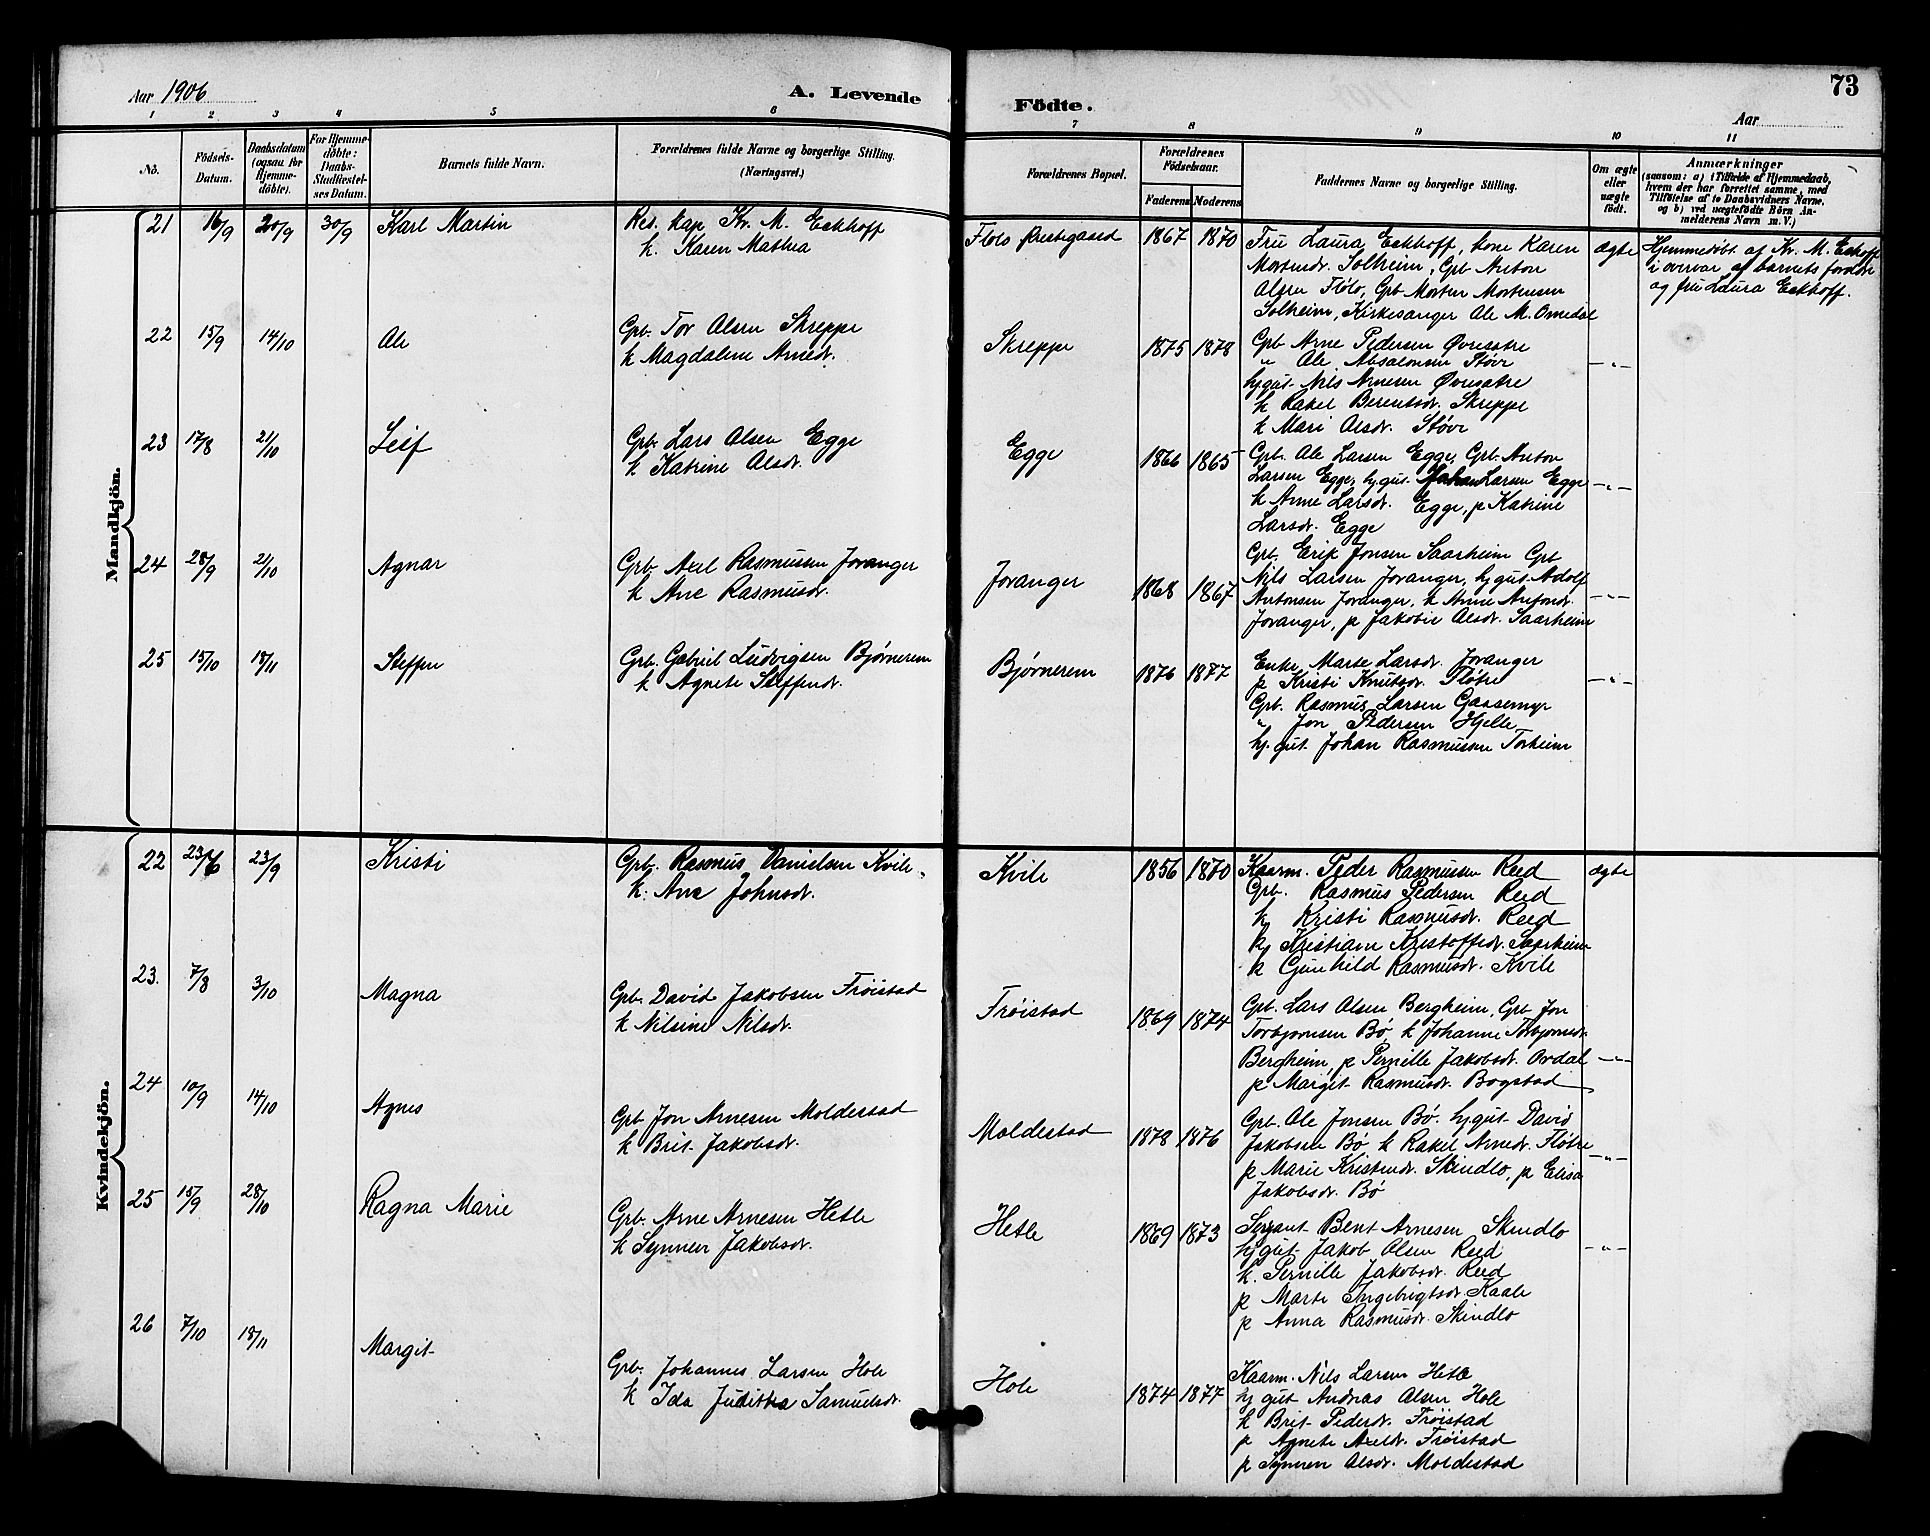 Aar 1906
A. Levende
Födte.
73
Aar
1 2 3 4 5 6 7 8 9 10 11
No.
Födsels-
Datum.
Daabsdatum
(ogsaa for
Hjemme-
döbte).
For Hjemme-
döbte:
Daabs-
Stadfæstel-
ses Datum.
Barnets fulde Navn.
Forældrenes fulde Navne og borgerlige Stilling.
(Næringsvei.)
Forældrenes Bopæl.
Forældrenes
Födselsaar.
Faderens Moderens
Faddernes Navne og borgerlige Stilling.
Om ægte
eller
uægte
födt.
Anmærkninger
(saasom: a) i Tilfælde af Hjemmedaab,
hvem der har forrettet samme, med
Tilföielse af to Daabsvidners Navne,
og b) ved uægtefödte Börn An-
melderens Navn m. V.)
Mandkjön.
21 16/9 20/9 30/9 Karl Martin
Res. kap Kr. M. Eckhoff
k. Karen Mathea
Flolo Prestegaard 1867 1870
Fru Laura Eckhoff, kone Karen
Mortensdr. Solheim, Grb. Anton
Olsen Flolo, Grb Morten Mortensen
Solheim, Kirkesanger Ole M. Omedal
ægte
Hjemmedøbt af Kr. M. Eckhoff
i overvær af barnets forældre
og fru Laura Eckhoff.
22 15/9 14/10 Ole
Grb. Tor Olsen Skreppe
k Magdalene Arnedr.
Skreppe 1875 1878
Grb Arne Pedersen Øvresætre
" Ole Absalonsen Støve
hj.gut. Nils Arnesen Øvresætre
k Rakel Berentsdr. Skreppe
k Mari Olsdr. Støve
–"–
23 17/8 21/10 Leif
Grb. Lars Olsen Egge
k Katrine Olsdr.
Egge 1866 1865
Grb. Ole Larsen Egge, Grb. Anton
Larsen Egge, hj.gut. Johan Larsen Egge
k Anne Larsdr. Egge, p Katrine
Larsdr. Egge
–"–
24 28/9 21/10 Agnar
Grb. Axel Rasmussen Jovanger
k Ane Rasmusdr.
Jovanger 1868 1867
Grb. Erik Jonsen Saarheim Grb
Nils Larsen Jovanger, hj gut. Adolf
Antonsen Jovanger, k Anne Antondr.
Jovanger, p Jakobie Olsdr. Saarheim
–"–
25 15/10 18/11 Steffen
Grb. Gabriel Ludvigsen Bjørnerem
k Agnete Steffendr.
Bjørnerem 1876 1877
Enke Marte Larsdr. Jovanger
p Kristi Knutsdr. Fløtre
Grb. Rasmus Larsen Gaasemyr
" Jon Pedersen Hjelle
hj. gut. Johan Rasmussen Torheim
–"–
Kvindekjön.
22 23/6 23/9 Kristi
Grb. Rasmus Danielsen Kvile
k. Ane Johnsdr.
Kvile 1856 1870
Kaarm. Peder Rasmussen Reed
Grb. Rasmus Pedersen Reed
k Kristi Rasmusdr. Reed
k Kristiane Kristoffedr. Saarheim
p Gunhild Rasmusdr. Kvile
ægte
23. 7/8 3/10 Magna
Grb. David Jakobsen Frøistad
k Nilsine Nilsdr.
Frøistad 1869 1874
Grb. Lars Olsen Bergheim, Grb Jon
Torbjørnsen Bø, k Johanne Torbjørnsdr.
Bergheim, p Pernille Jakobsdr. Ordal
p Margit Rasmusdr. Bogstad
–"–
24 10/9 14/10 Agnes
Grb Jon Arnesen Moldestad
k Brit. Jakobsdr.
Moldestad 1878 1876
Grb. Ole Jonsen Bø. hj gut David
Jakobsen Bø k Rakel Arnedr. Fløtre
p Marie Kristendr. Skindlo, p Elisa
Jakobsdr. Bø
–"–
25 15/9 28/10 Ragna Marie
Grb. Arne Arnesen Hetle
k Synneve Jakobsdr.
Hetle 1869 1873
Sergant Bent Arnesen Skindlo
hj gut. Jakob Olsen Reed
k. Pernille Jakobsdr. Reed
p Marte Ingebrigtsdr. Kaale
p Anna Rasmusdr. Skindlo
–"–
26 7/10 18/11 Margit
Grb. Johannes Larsen Hole
k Ida Juditha Samuelsdr.
Hole 1874 1877
Kaarm. Nils Larsen Hetle
hj gut Andreas Olsen Hole
k Brit Pedersdr. Frøistad
p Agnete Axeldr. Frøistad
p Synneve Olsdr. Moldestad